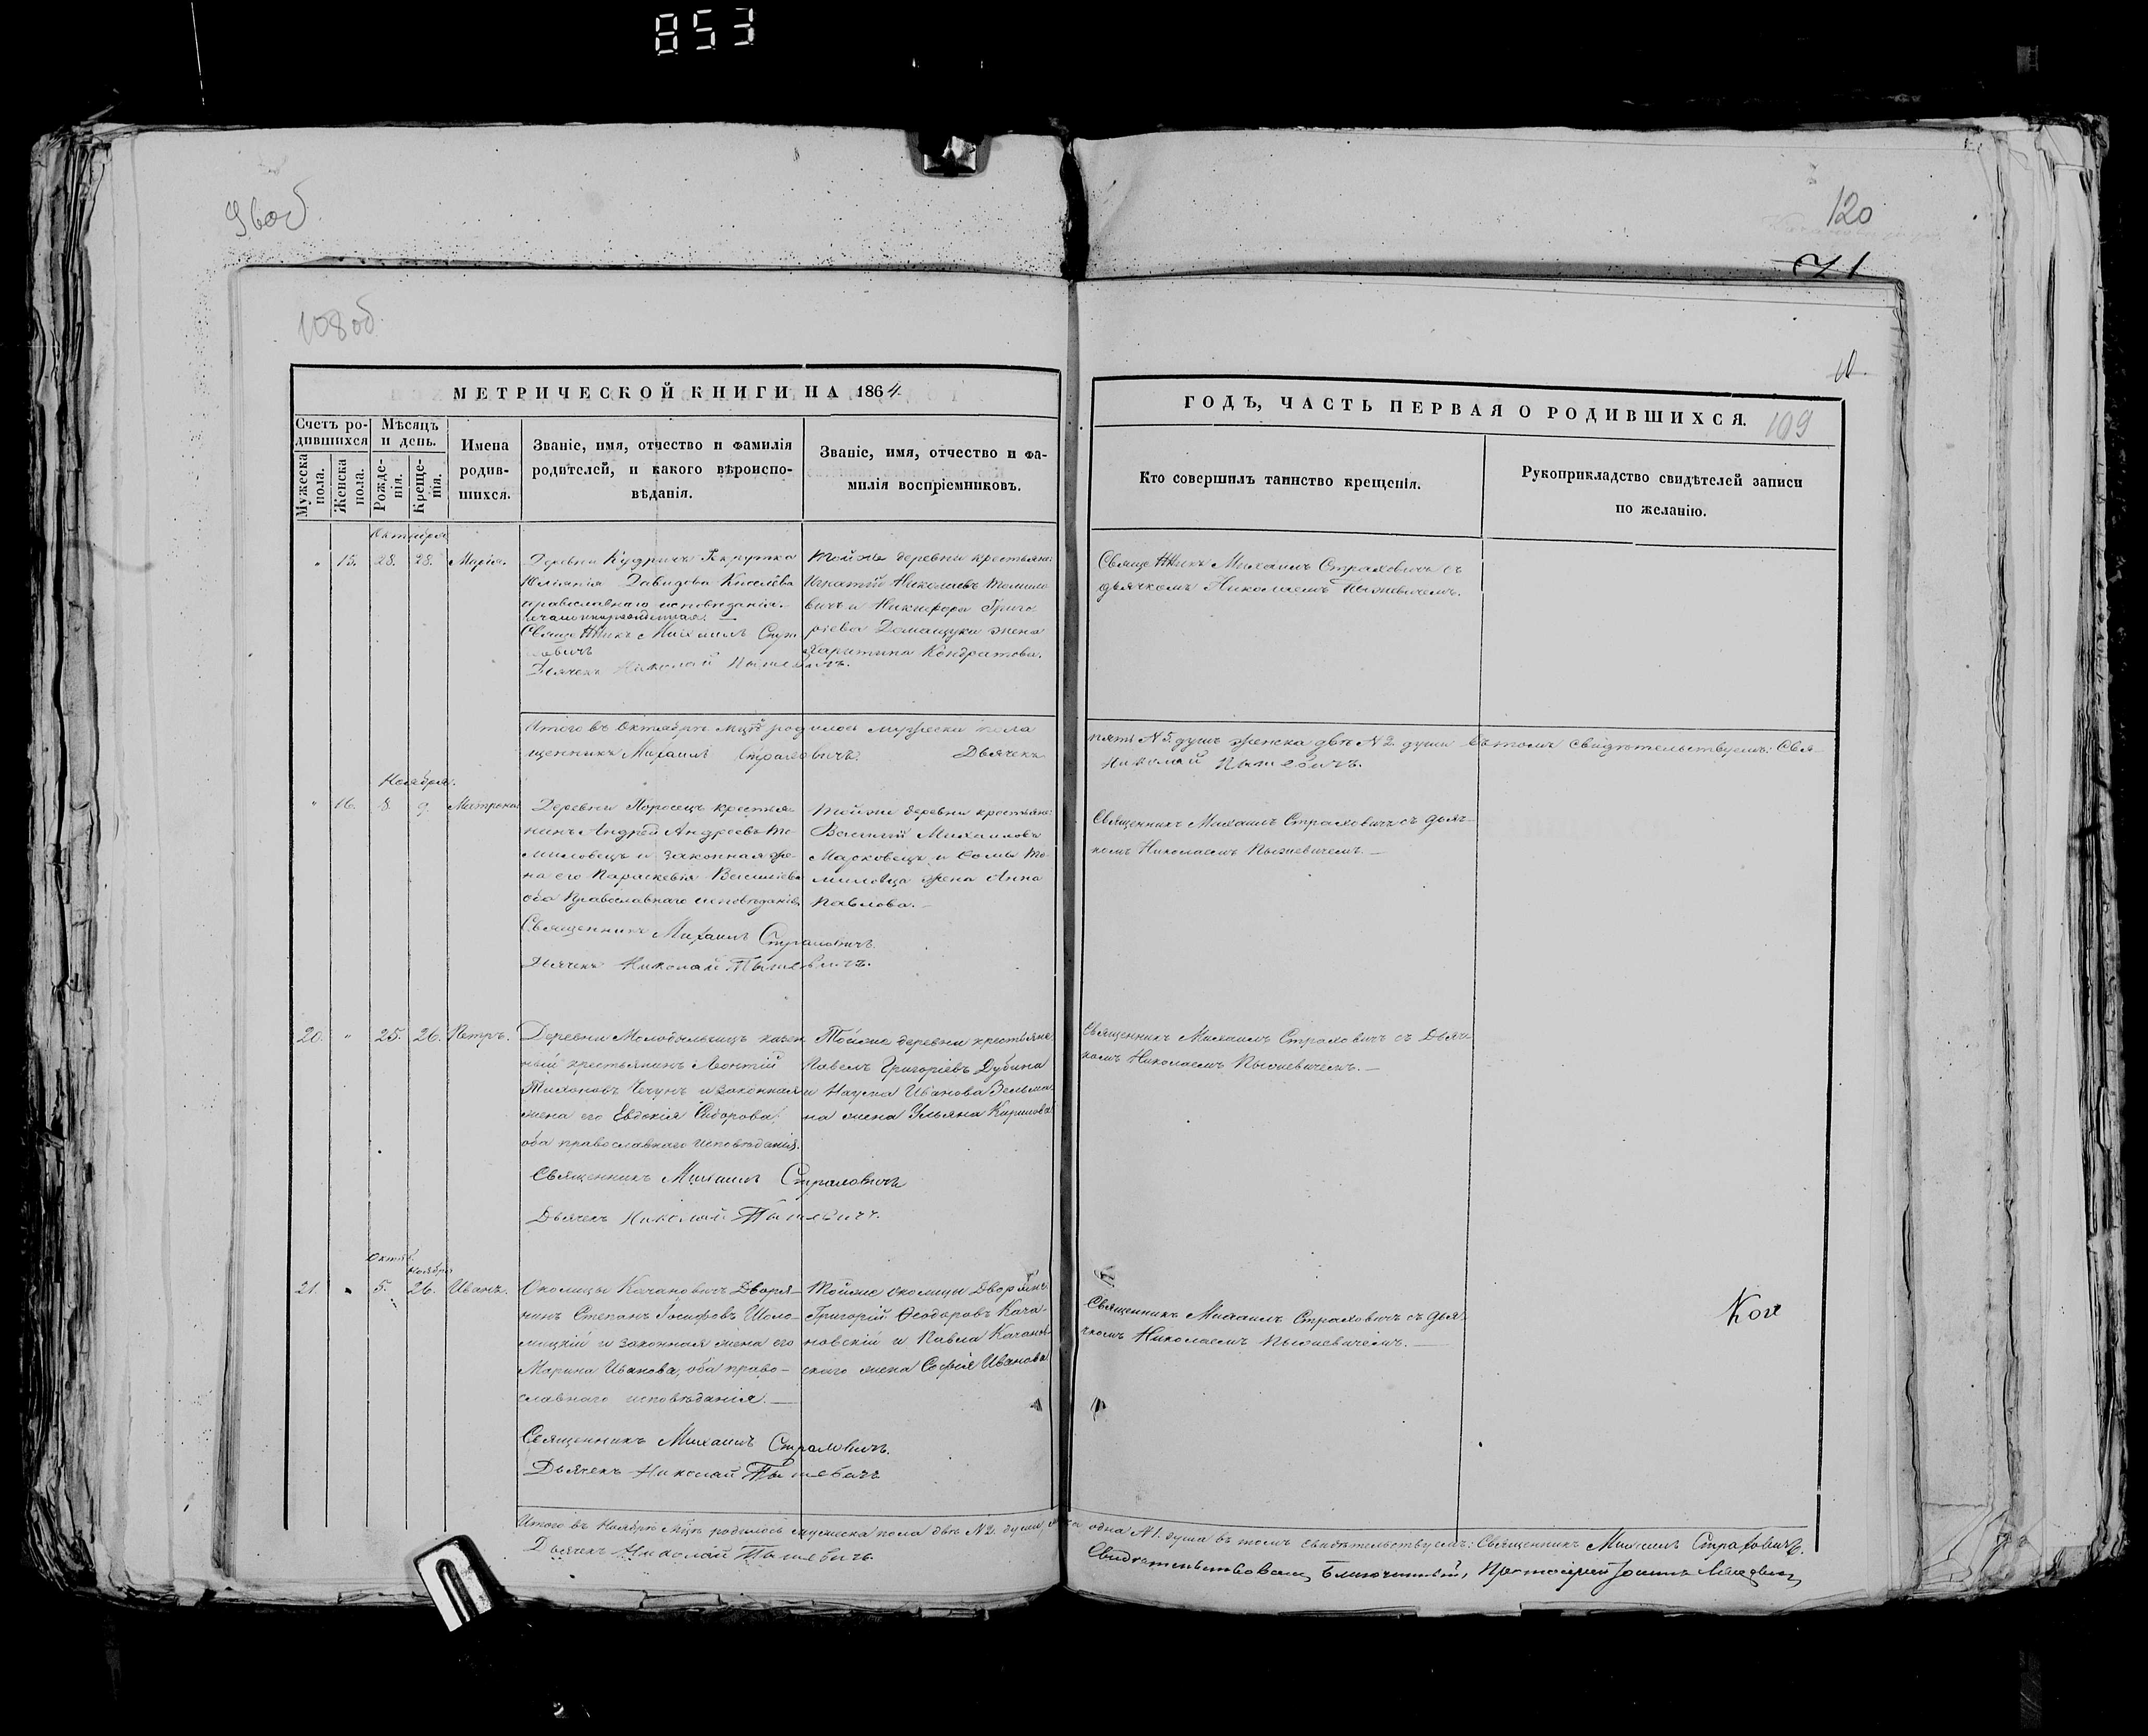 853
96об
120
71
108об.
МЕТРИЧЕСКОЙ КНИГИ НА 1864
Счетъ родившихся
Мужеска пола.
Женска пола.
Мѣсяцъ и день.
Рожденія.
Крещенія.
Имена родившихся.
Званіе, имя, отчество и фамилія
родителей, и какого вѣроиспо-
вѣданія.
Званіе, имя, отчество и фа-
милія воспріемниковъ.
ГОДЪ, ЧАСТЬ ПЕРВАЯ О РОДИВШИХСЯ.
109
Кто совершилъ таинство крещенія.
Рукоприкладство свидѣтелей записи
по желанію.
Октября
" 15. 28. 28. Марія.
Деревни Кудричъ
Юліянія Давидова Киселёва
православнаго исповѣданія.
Михаилъ
Дьячекъ Николай
Тойже деревни крестьяне:
Игнатій Николаевъ Томило
вичъ и Никифора Григо
ріева Домащука жена
Харитина Кондратова.
Михаилъ Страховичъ съ
дьячкомъ Николаемъ Пыжевичемъ.
Итого въ Октябрѣ мцѣ родилось мужеска пола
пять №5. душъ женска двѣ №2 души въ томъ свидѣтельствуемъ: Свя-
щенникъ Михаилъ Страховичъ. Дьячекъ
Николай Пыжевичъ.
Ноября.
" 16. 8. 9. Матрона
Деревни Поросецъ крестья-
нинъ Андрей Андреевъ То-
миловецъ и законная же-
на его Параскевія Васильева
оба Православнаго исповѣданія.
Священникъ Михаилъ Страховичъ.
Дьячекъ Николай Пыжевичъ.
Тойже деревни крестьяне:
Василій Михаиловъ
Марковецъ и Сомы То-
миловца жена Анна
Павлова.
Священникъ Михаилъ Страховичъ съ дьяч-
комъ Николаемъ Пыжевичемъ.
20. " 25. 26. Петръ.
Деревни Молодѣльчицъ казен
ный крестьянинъ Леонтій
Тихоновъ Чечунъ и законная
жена его Евдокія Сидорова,
оба православнаго исповѣданія.
Священникъ Михаилъ Страховичъ
Дьячекъ Николай Пыжевичъ.
Тойже деревни крестьяне
Павелъ Григоріевъ Дубина
и Наума Иванова Вельма-
на жена Ульяна Кирилова
Священникъ Михаилъ Страховичъ съ Дьяч-
комъ Николаемъ Пыжевичемъ.
Октяб. Ноября
21. " 5. 26. Иванъ.
Околицы Качановичъ Дворя-
нинъ Степанъ Іосифовъ Шоло-
мицкій и законная жена его
Марина Иванова, оба право-
славнаго исповѣданія.
Священникъ Михаилъ Страховичъ.
Дьячекъ Николай Пыжевичъ
Тойже околицы Дворяне
Григорій Ѳеодоровъ Кача-
новскій и Павла Качанов-
скаго жена Софія Иванова
Священникъ Михаилъ Страховичъ съ дья-
чкомъ Николаемъ Пыжевичемъ.
Итого въ Ноябрѣ мцѣ родилось мужеска пола двѣ №2. души одна №1. душа въ томъ свидѣтельствуемъ: Священникъ Михаилъ Страховичъ.
Дьячекъ Николай Пыжевичъ.
Свидѣтельствовалъ Благочинный, Протоіерей Іоаннъ